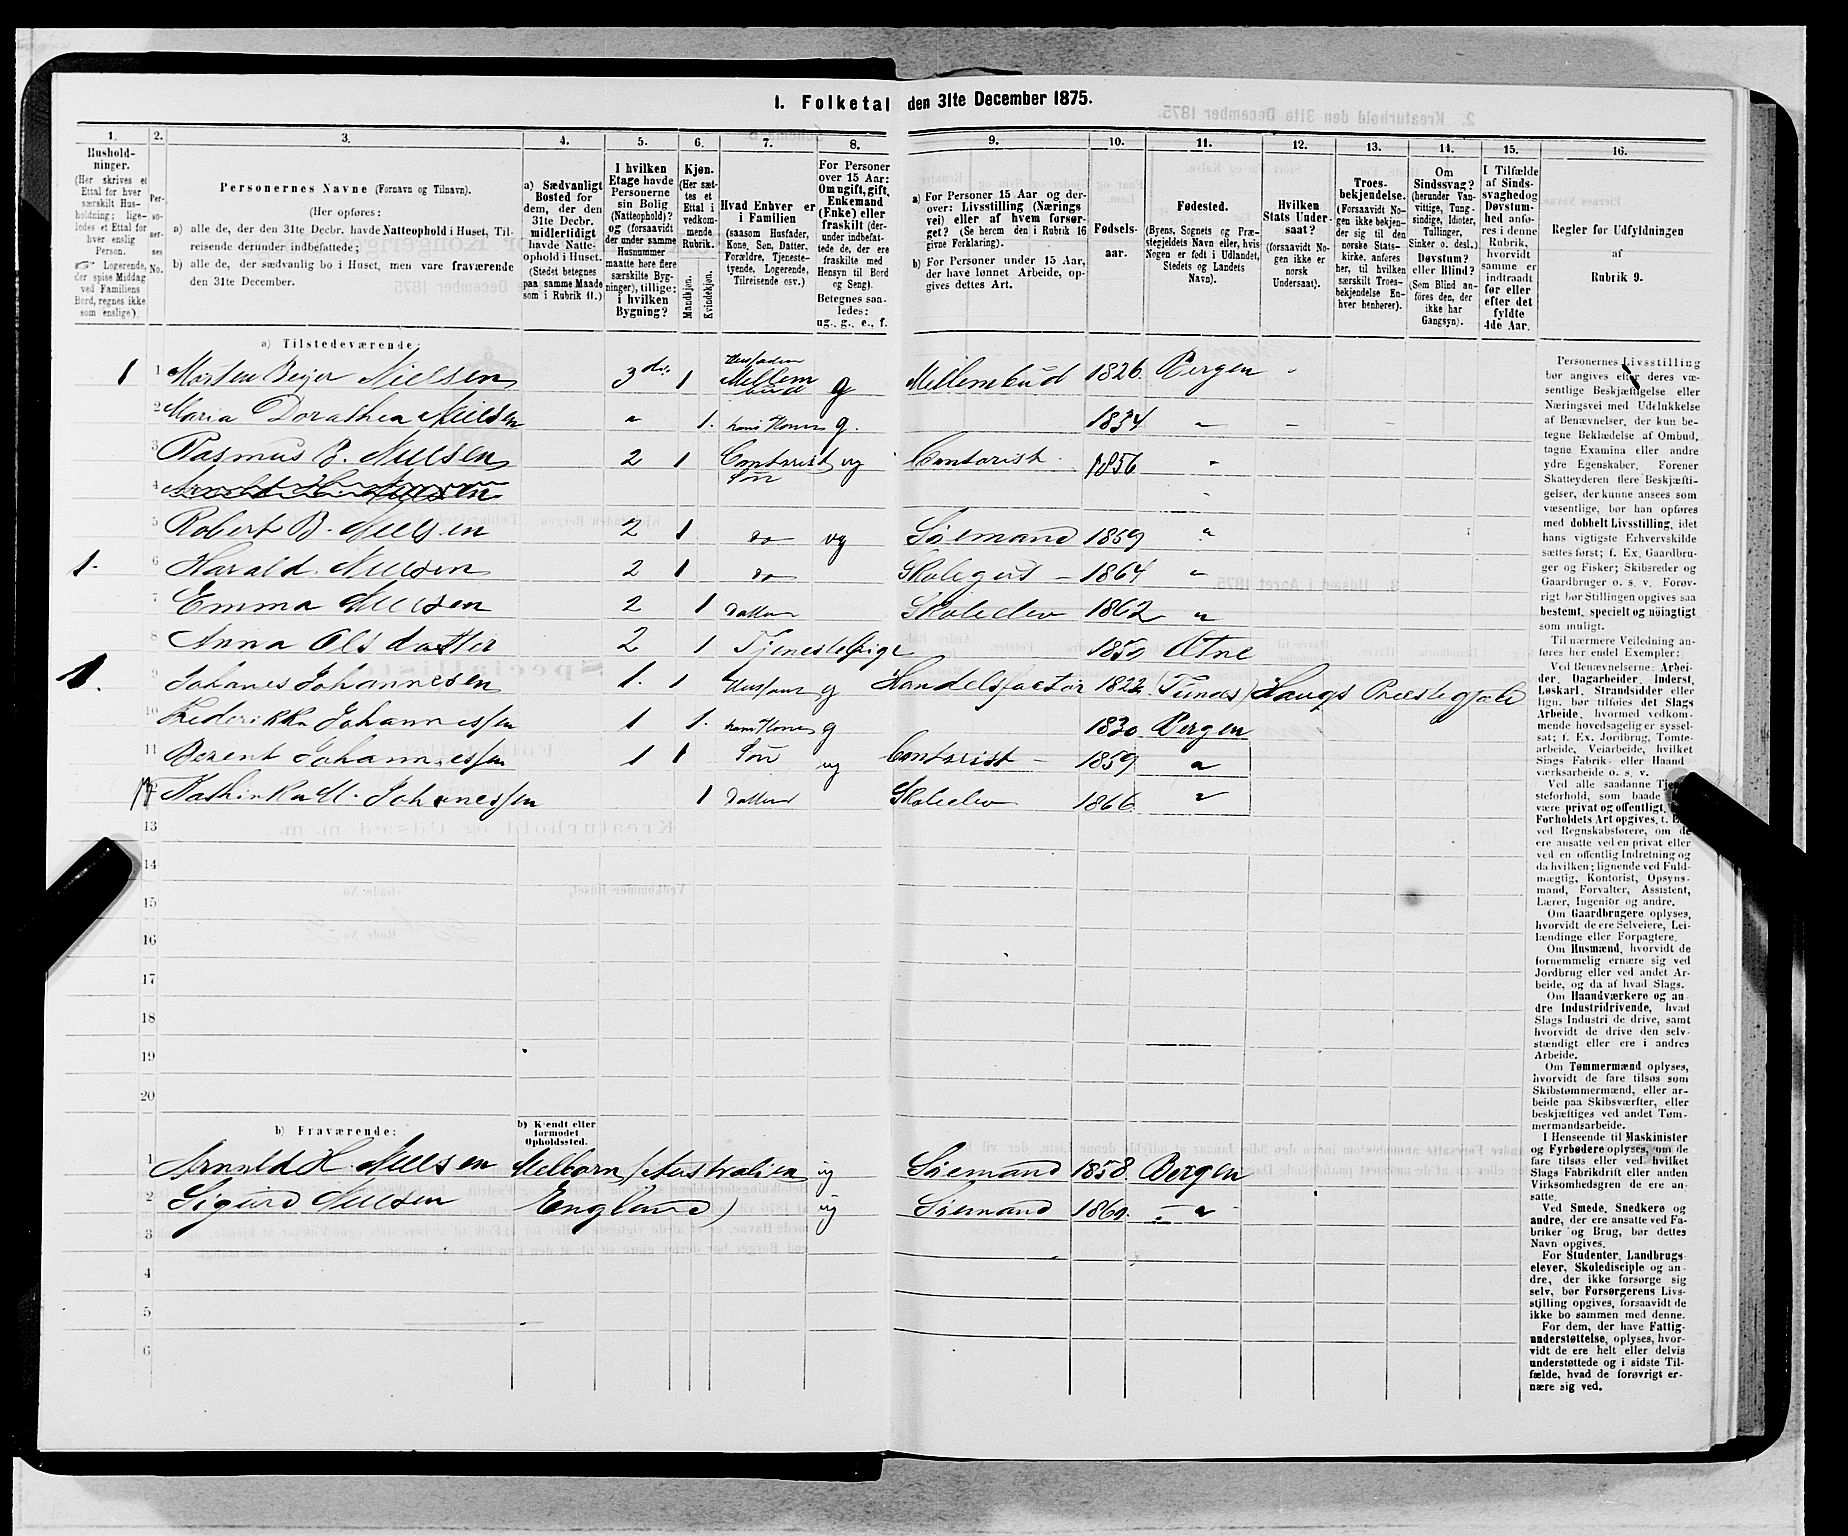 1. Folketal den 31te December 1875.
1.
2.
3.
4.
5.
6.
7.
8.
9.
10.
11.
12.
13.
14.
15.
16.
Hushold-
ninger.
(Her skrives et
Ettal for hver
særskilt Hus-
holdning; lige-
ledes et Ettal for
hver enslig
Person.
☞ Logerende,
der spise Middag
ved Familiens
Bord, regnes ikke
som enslige).
Per-
so-
ner-
nes
No.
Personernes Navne (Fornavn og Tilnavn).
(Her opføres:
a) alle de, der den 31te Decbr. havde Natteophold i Huset, Til-
reisende derunder indbefattede;
b) alle de, der sædvanlig bo i Huset, men vare fraværende
den 31te December.
a) Sædvanligt
Bosted for
dem, der den
31te Decbr.
midlertidigt
havde Natte-
ophold i Huset.
(Stedet betegnes
paa samme Maade
som i Rubrik 11.)
I hvilken
Etage havde
Personerne
sin Bolig
(Natteophold)?
og (forsaavidt
der under samme
Husnummer
maatte høre flere
særskilte Byg-
ninger), tillige:
i hvilken
Bygning?
Kjøn.
(Her sæt-
tes et
Ettal i
vedkom-
mende
Rubrik.)
Mandkjøn.
Kvindekjøn.
Hvad Enhver er
i Familien
(saasom Husfader,
Kone, Søn, Datter,
Forældre, Tjeneste-
tyende, Logerende,
Tilreisende osv.)
For Personer
over 15 Aar:
Om ugift, gift,
Enkemand
(Enke) eller
fraskilt (der-
under indbefat-
tede de, der ere
fraskilte med
Hensyn til Bord
og Seng).
Betegnes saa-
ledes:
ug., g., e., f.
a) For Personer 15 Aar og der-
over: Livsstilling (Nærings
vei) eller af hvem forsør-
get? (Se herom den i Rubrik 16
givne Forklaring).
b) For Personer under 15 Aar,
der have lønnet Arbeide, op-
gives dettes Art.
Fødsels-
aar.
Fødested.
(Byens, Sognets og Præ-
stegjeldets Navn eller, hvis
Nogen er født i Udlandet,
Stedets og Landets
Navn).
Hvilken
Stats Under-
saat?
(forsaavidt No-
gen ikke er
norsk
Undersaat).
Troes-
bekjendelse.
(Forsaavidt No-
gen ikke bekjen-
der sig til den
norske Stats-
kirke, anføres
her, til hvilken
særskilt Troes-
bekjendelse En-
hver henhører).
Om
Sindssvag?
(herunder Van-
vittige, Tung-
sindige, Idioter,
Tullinger,
Sinker o. desl.)
Døvstum?
eller Blind?
(Som Blind an-
føres den, der
ikke har
Gangsyn).
I Tilfælde
af Sinds-
svaghed og
Døvstum-
hed anfø-
res i denne
Rubrik,
hvorvidt
samme er
indtraadt
før eller
efter det
fyldte
4de Aar.
Regler for Udfyldningen
af
Rubrik 9.
a) Tilstedeværende:
1 1 Morten Beyer Nielsen 3die 1 Husfader Mellembud g Mellembud 1826. Bergen
2 Maria Dorathea Nielsen " 1. hans Kone g. 1834 " - -
3 Rasmus B. Nielsen 2 1 Contorist Søn ug Contorist 1856 "
4 Arnold H. Nielsen
5 Robert B. Nielsen 2 1 do ug Søemand 1859 "
1. 6 Harald Nielsen 2 1 do Skolegut 1864 "
7 Emma Nielsen 2 1 Datter Skoleelev 1862 "
8 Anna Olsdatter 2 1 Tjenestepige 1850 Etne
1. 9 Johanes Johannesen 1. 1 Husfader g Handelsfactor 1822 Haugs Præstegjæld
10 Frederikke Johannessen 1 1. hans Kone g 1830 Bergen
11 Berent Johannessen 1 1 Søn ug Contorist 1859 "
12 Kathinka M. Johanessen 1 Datter Skoleelev 1866 "
13
14
15
16
17
18
19
20
b) Fraværende:
b) Kjendt eller
formodet
Opholdssted.
1 Arnold H. Nielsen Melborn / Australien ug Søemand 1858. Bergen
2 Sigurd Nielsen England ug Søemand 1860. "
3
4
5
6
Personernes Livsstilling
bør angives efter deres væ-
sentlige Beskjæftigelse eller
Næringsvei med Udelukkelse
af Benævnelser, der kun be-
tegne Beklædelse af Ombud,
tagne Examina eller andre
ydre Egenskaber. Forener
Skatteyderen flere Beskjæfti-
gelser, der kunne ansees som
væsentlige, bør han opføres
med dobbelt Livsstilling, idet
hans vigtigste Erhvervskilde
sættes først; f. Ex. Gaardbru-
ger og Fisker; Skibsreder og
Gaardbruger o. s. v. Forøv-
rigt bør Stillingen opgives saa
bestemt, specielt og nøiagtigt
som muligt.
Til nærmere Veiledning an-
føres her endel Exempler:
Ved Benævnelserne: Arbei-
der, Dagarbeider, Inderst,
Løskarl, Strandsidder eller
lign. bør tilføies det Slags
Arbeide, hvormed vedkom-
mende hovedsagelig er syssel-
sat; f. Ex. Jordbrug, Tomte-
arbeide, Veiarbeide, hvilket
Slags Fabrik- eller Haand
værksarbeide o. s. v.
Ved alle saadanne Tjene-
steforhold, som baade
være privat og offentlig,
Forholdets Art opgives, t. Ex.
ved Regnskabsførere, om de
ere ansatte ved en privat eller
ved en offentlig Indretning og
da hvilken; lignende ved Fuld-
mægtig, Kontorist, Opsyns-
mand, Forvalter, Assistent,
Lærer, Ingeniør og andre.
Om Gaardbrugere oplyses,
hvorvidt de ere Selveiere, Lei-
lændinge eller Forpagtere.
Om Husmænd, hvorvidt de
fornemmelig ernære sig ved
Jordbrug eller ved andet Ar-
beide, og da af hvad Slags.
Om Haandværkere og an-
dre Industridrivende, hvad
Slags Industri de drive, samt
hvorvidt de drive den selv-
stændigt eller ere i andres
Arbeide.
Om Tømmermænd oplyses,
hvorvidt de fare tilsøs som
Skibstømmermænd, eller ar-
beide paa Skibsværfter, eller
beskjæftiges ved andet Tøm-
mermandsarbeide.
I Henseende til Maskinister
og Fyrbødere oplyses, om de
fare tilsøs eller ved hvilket
Slags Fabrikdrift eller anden
Virksomhedsgren de ere an-
satte.
Ved Smede, Snedkere og
andre, der ere ansatte ved Fa-
briker og Brug, bør dettes
Navn opgives.
For Studenter, Landbrugs-
elever, Skoledisciple og an-
dre, der ikke forsørge sig
selv, bør Forsørgerens Livs-
stilling opgives, forsaavidt de
ikke bo sammen med denne.
For dem, der have Fattig-
understøttelse, oplyses, hvor-
vidt de ere helt eller delvis
understøttede og i sidste Til-
fælde, hvad de forøvrigt er-
nære sig ved.